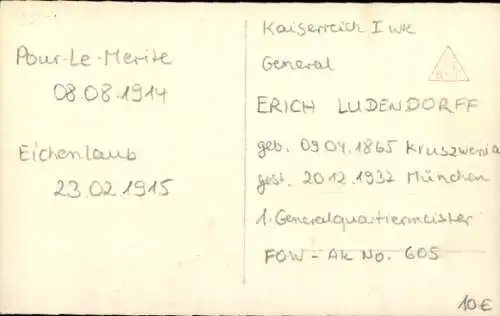 Pour-Le-Merite
08.08.1914
Eichenlaub
23.02.1915
Kaiserreich I WK
General
ERICH LUDENDORFF
geb. 09.04.1865 Kruszwenia
gest. 20.12.1937 München
1. Generalquartiermeister
FOW - AK No. 605
10€